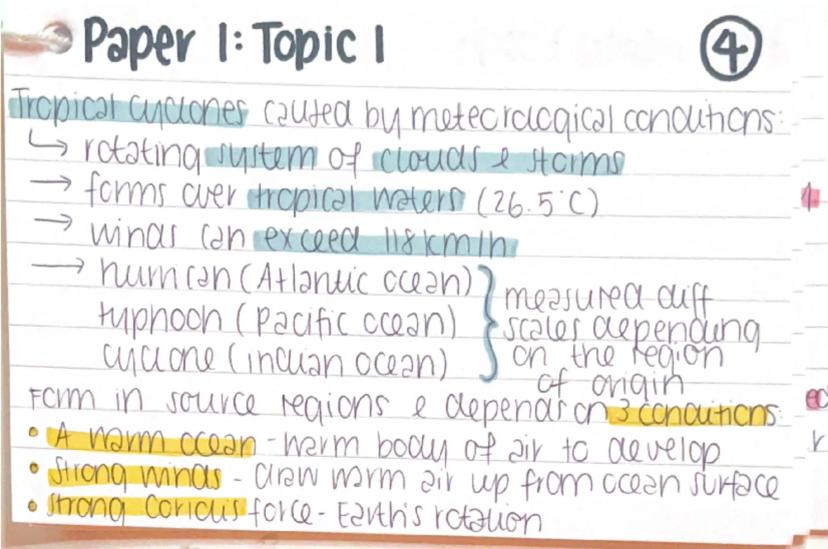 Paper 1: Topic 1
④
Tropical cyclones caused by meteorological conditions:
↳ rotating system of clouds & storms
→ forms over tropical waters (26.5°C)
→ winds can exceed 118km/h
→ hurrican (Atlantic ocean)
typhoon (pacific ocean)
cyclone (indian ocean)
measured diff
scales depending
on the region
of origin
Form in source regions & depends on 3 conditions:
• A warm ocean - warm body of air to develop
• Strong winds - draw warm air up from ocean surface
• Strong Coriolis force - Earth's rotation